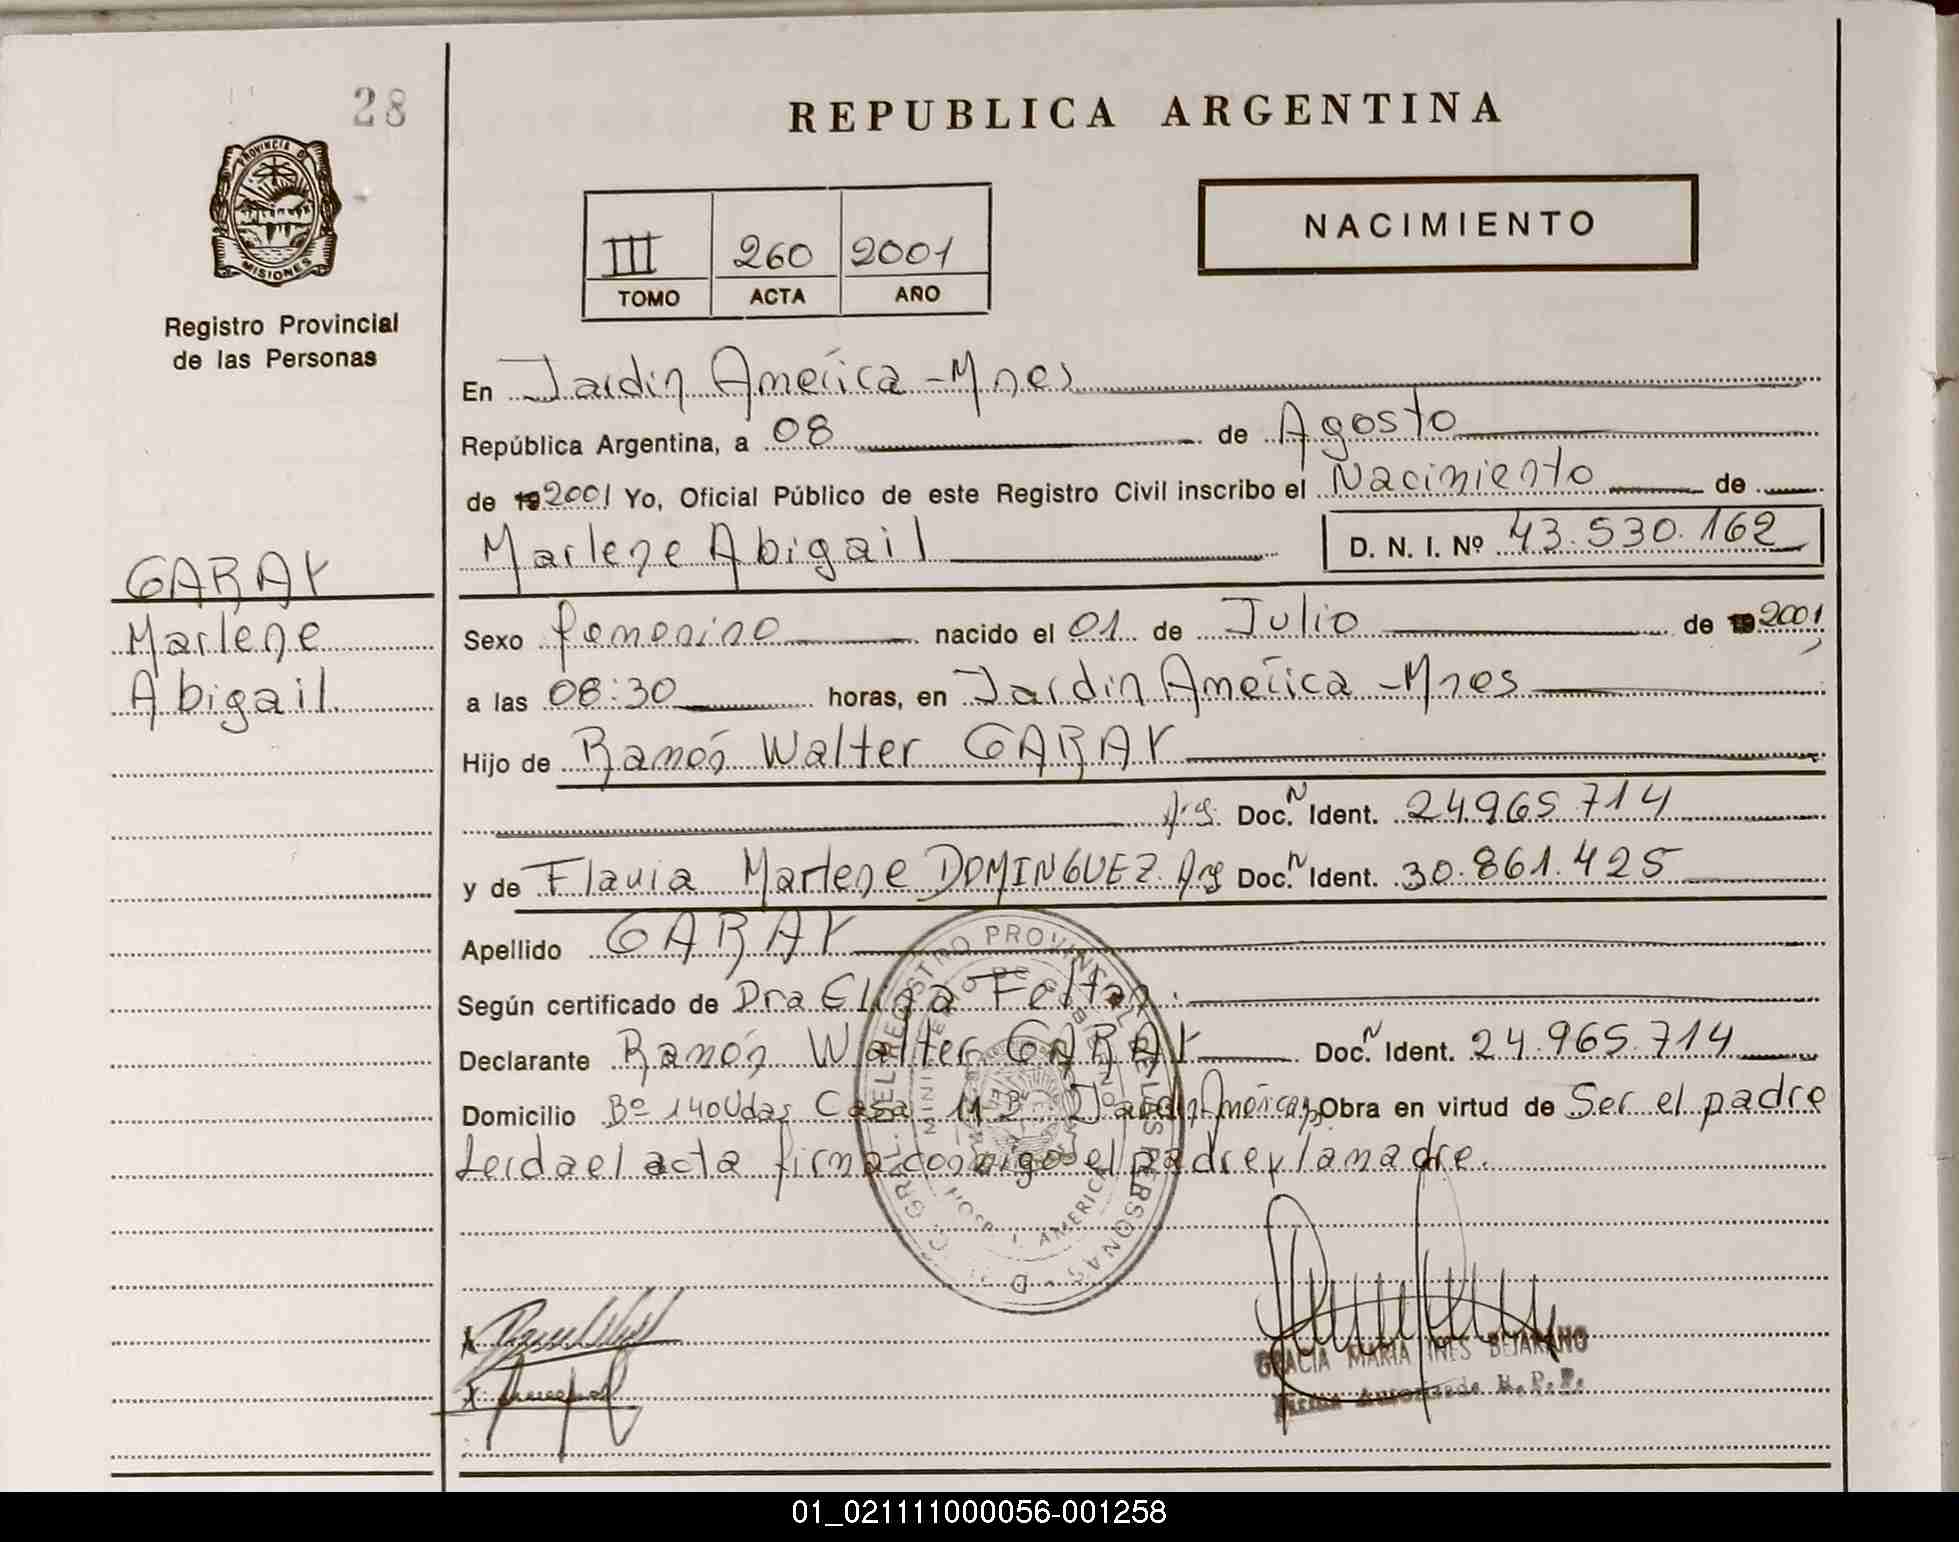 28
PROVINCIA DE
MISIONES
Registro Provincial
de las Personas
GARAY
Marlene
Abigail
REPUBLICA ARGENTINA
III 260 2001
TOMO ACTA AÑO
NACIMIENTO
En Jardín América - Mnes
República Argentina, a 08 de Agosto
de 19 2001 Yo, Oficial Público de este Registro Civil inscribo el Nacimiento de
Marlene Abigail D. N. I. Nº 43.530.162
Sexo femenino nacido el 01 de Julio de 19 2001
a las 08:30 horas, en Jardín América - Mnes
Hijo de Ramón Walter GARAY
Arg. Doc. N Ident. 24965714
y de Flavia Marlene DOMINGUEZ. Arg Doc. N Ident. 30.861.425
Apellido GARAY
Según certificado de Dra Elisa
Declarante Ramón Walter GARAY Doc. N Ident. 24.965.714
Domicilio Bº 140 Vdas Casa 112 Jardín América Obra en virtud de Ser el padre
Leida el acta firma conmigo el padre y la madre.
GRACIA MARIA INES BEJARANO
Firma Autorizada R.P.P.
01_021111000056-001258